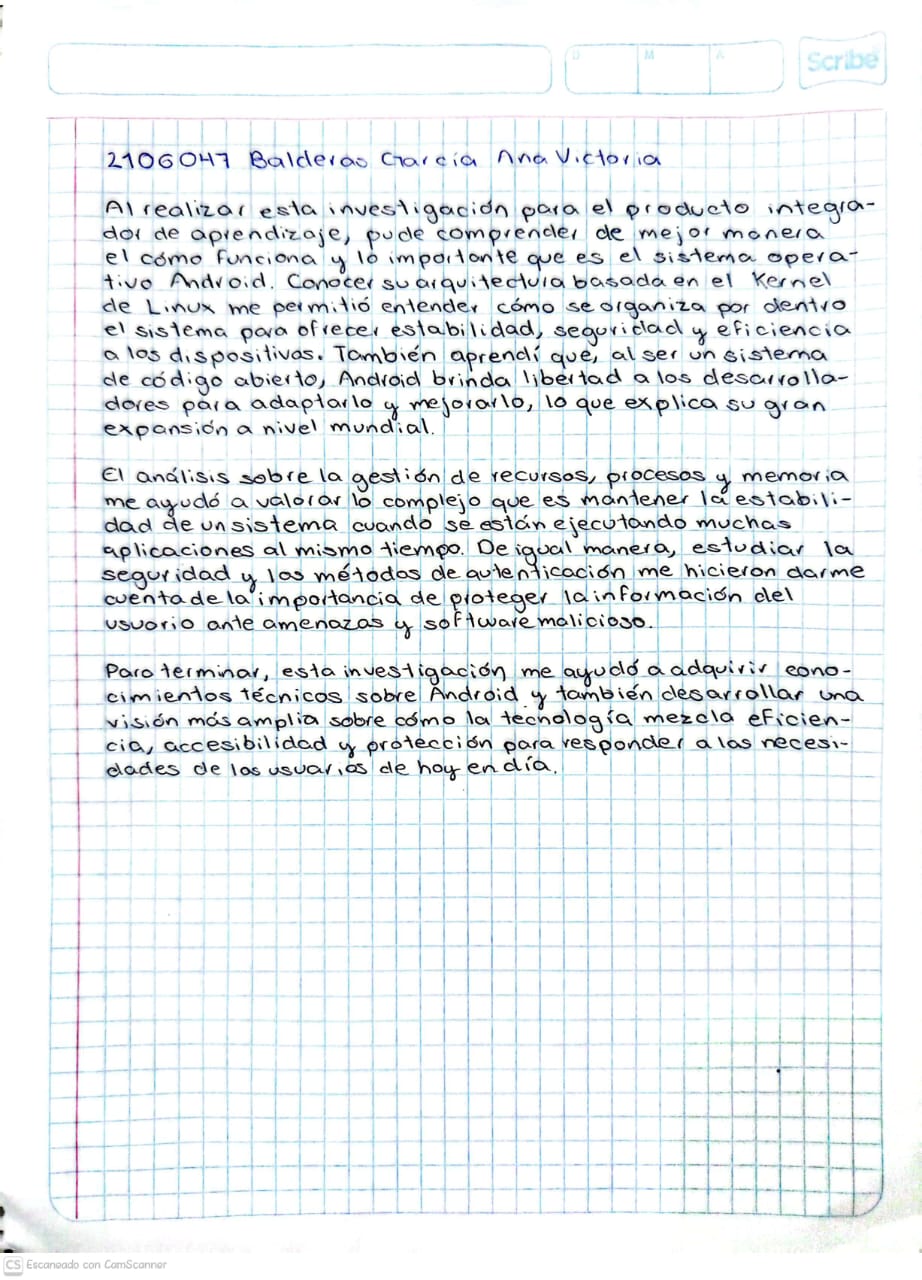 D M A Scribe
2106047 Balderas García Ana Victoria
Al realizar esta investigación para el producto integra-
dor de aprendizaje, pude comprender de mejor manera
el cómo funciona y lo importante que es el sistema opera-
tivo Android. Conocer su arquitectura basada en el Kernel
de Linux me permitió entender cómo se organiza por dentro
el sistema para ofrecer estabilidad, seguridad y eficiencia
a los dispositivos. También aprendí que, al ser un sistema
de código abierto, Android brinda libertad a los desarrolla-
dores para adaptarlo y mejorarlo, lo que explica su gran
expansión a nivel mundial.
El análisis sobre la gestión de recursos, procesos y memoria
me ayudó a valorar lo complejo que es mantener la estabili-
dad de un sistema cuando se están ejecutando muchas
aplicaciones al mismo tiempo. De igual manera, estudiar la
seguridad y los métodos de autenticación me hicieron darme
cuenta de la importancia de proteger la información del
usuario ante amenazas y software malicioso.
Para terminar, esta investigación me ayudó a adquirir cono-
cimientos técnicos sobre Android y también desarrollar una
visión más amplia sobre cómo la tecnología mezcla eficien-
cia, accesibilidad y protección para responder a las necesi-
dades de los usuarios de hoy en día.
CS Escaneado con CamScanner